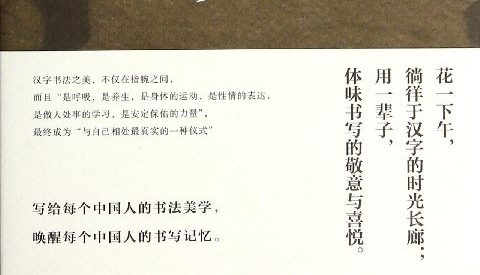 花一下午，
徜徉于汉字的时光长廊；
用一辈子，
体味书写的敬意与喜悦。
汉字书法之美，不仅在指腕之间，
而且“是呼吸，是养生，是身体的运动，是性情的表达，
是做人处事的学习，是安定保佑的力量”，
最终成为“与自己相处最真实的一种仪式”
写给每个中国人的书法美学，
唤醒每个中国人的书写记忆。